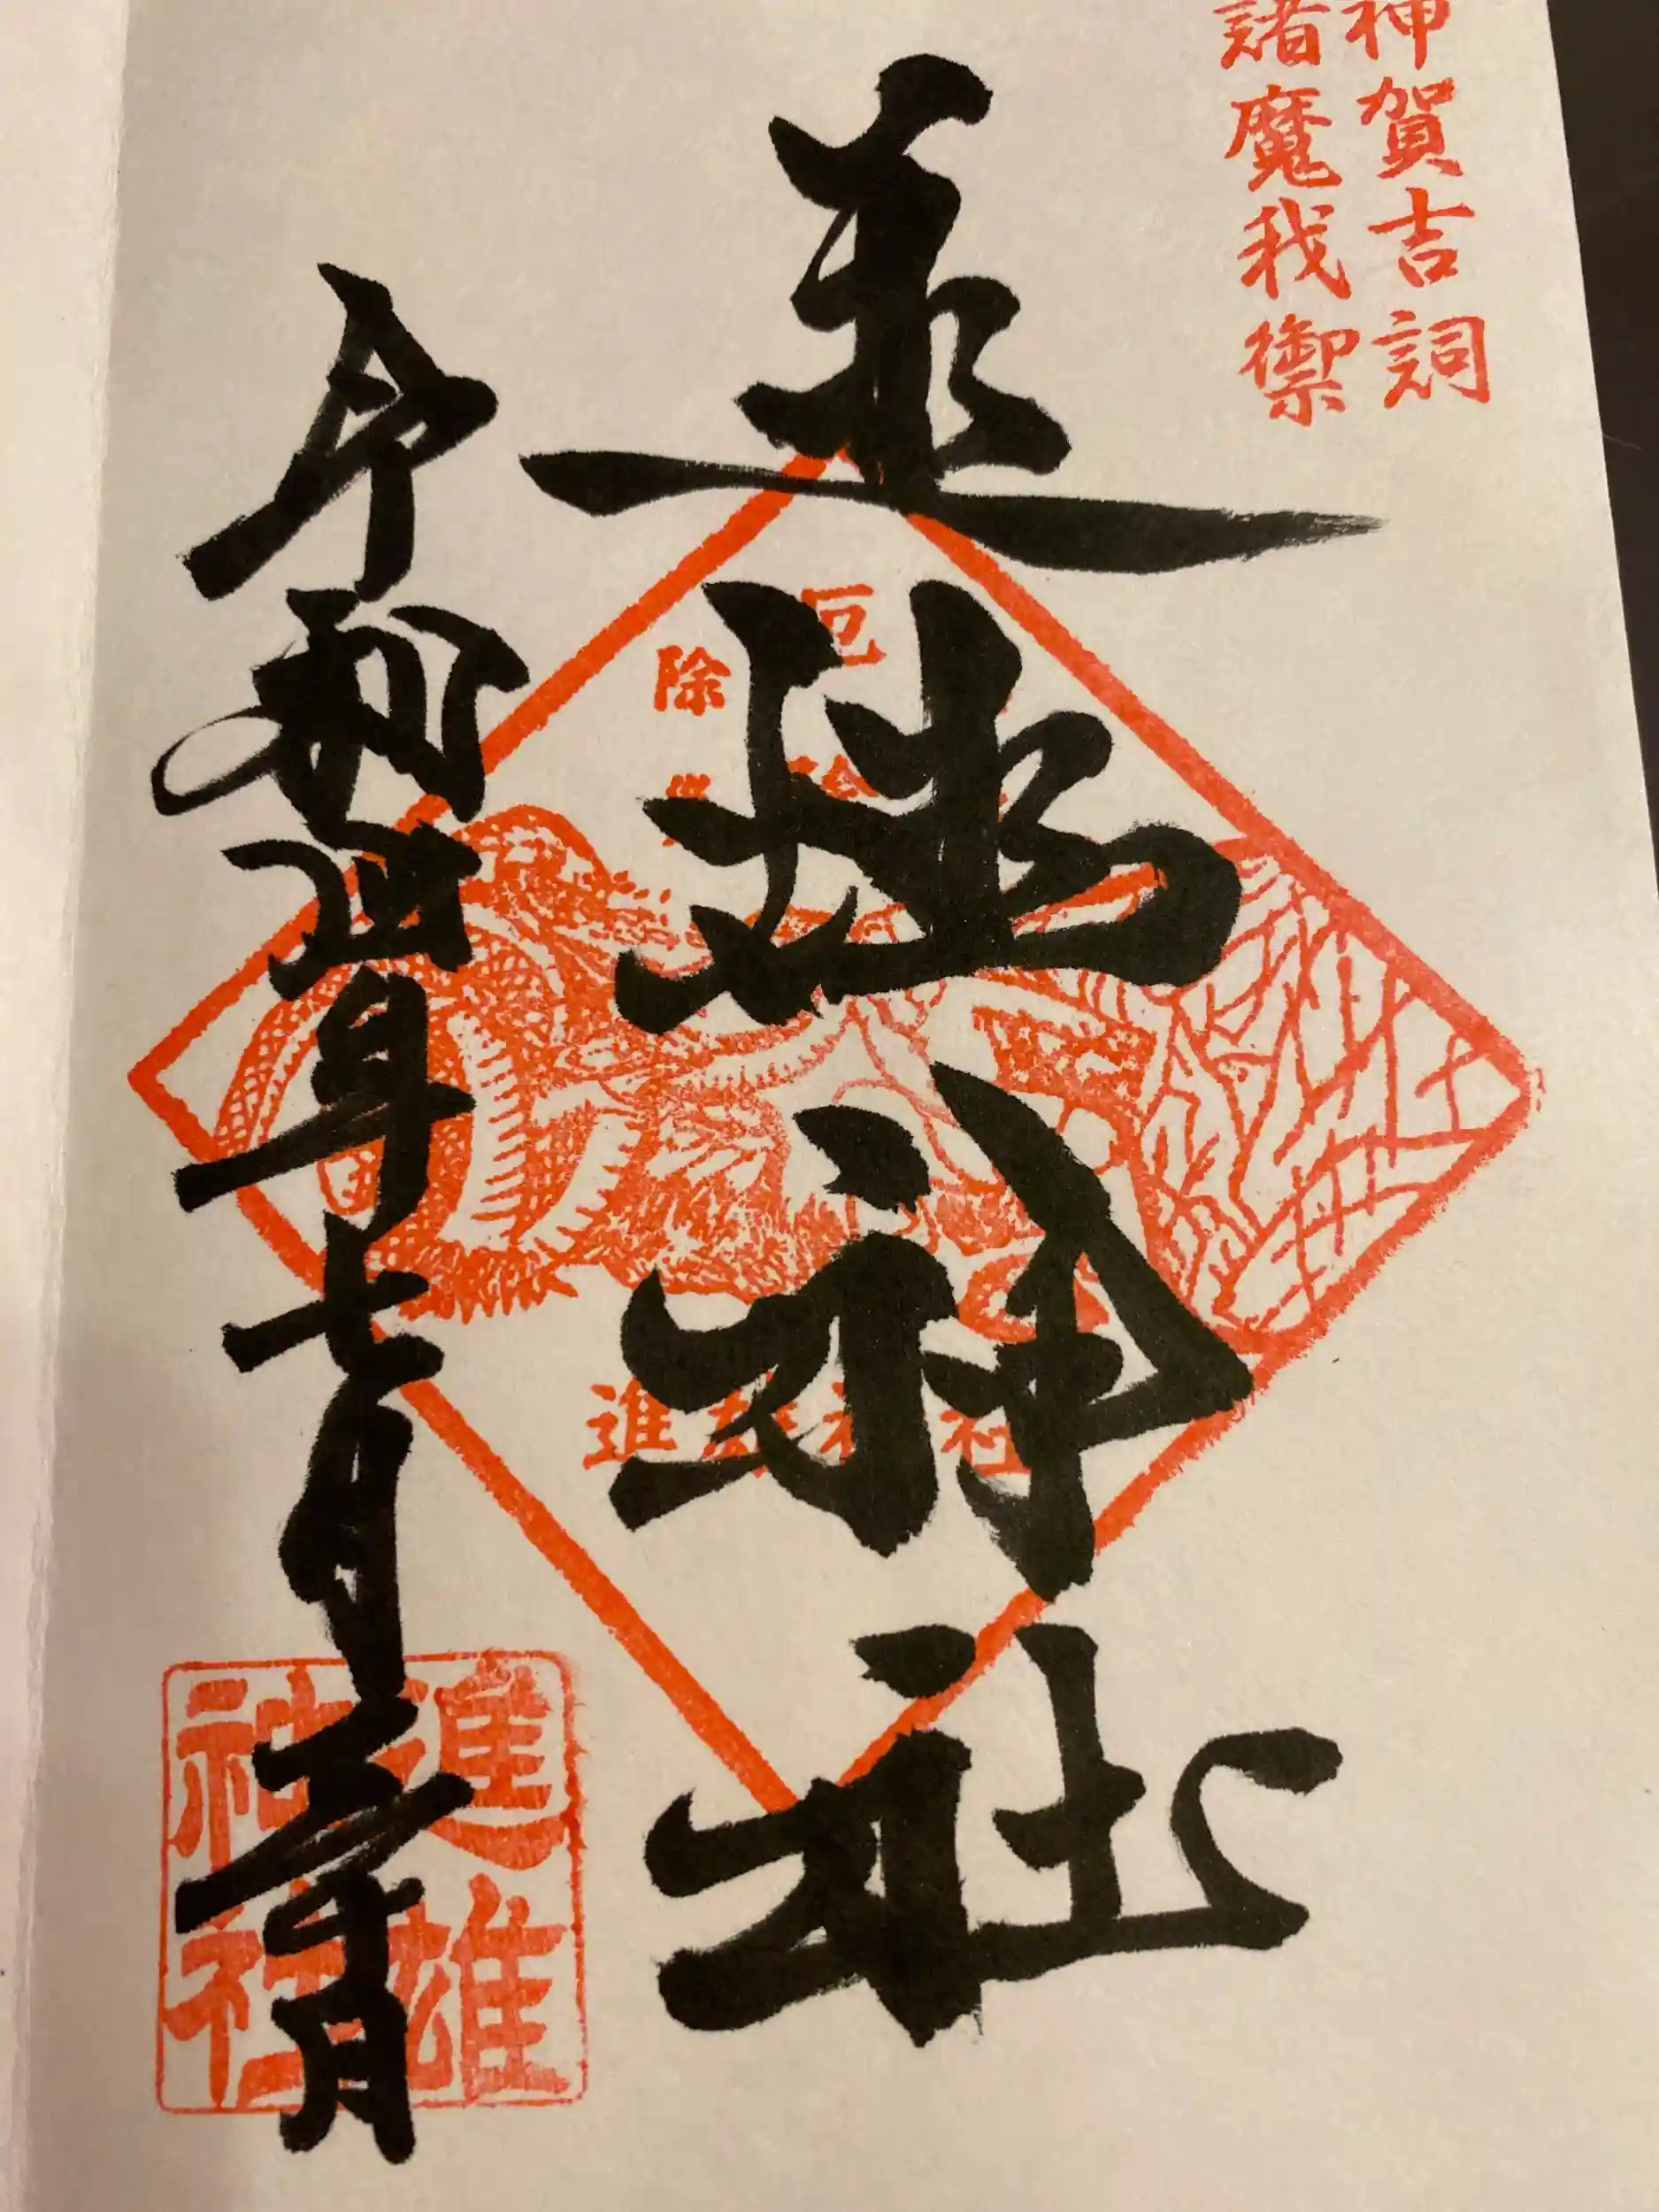 神賀吉詞
諸魔我禦
進雄神社
厄
除
進雄神社
令和四年七月 日
進雄
神社